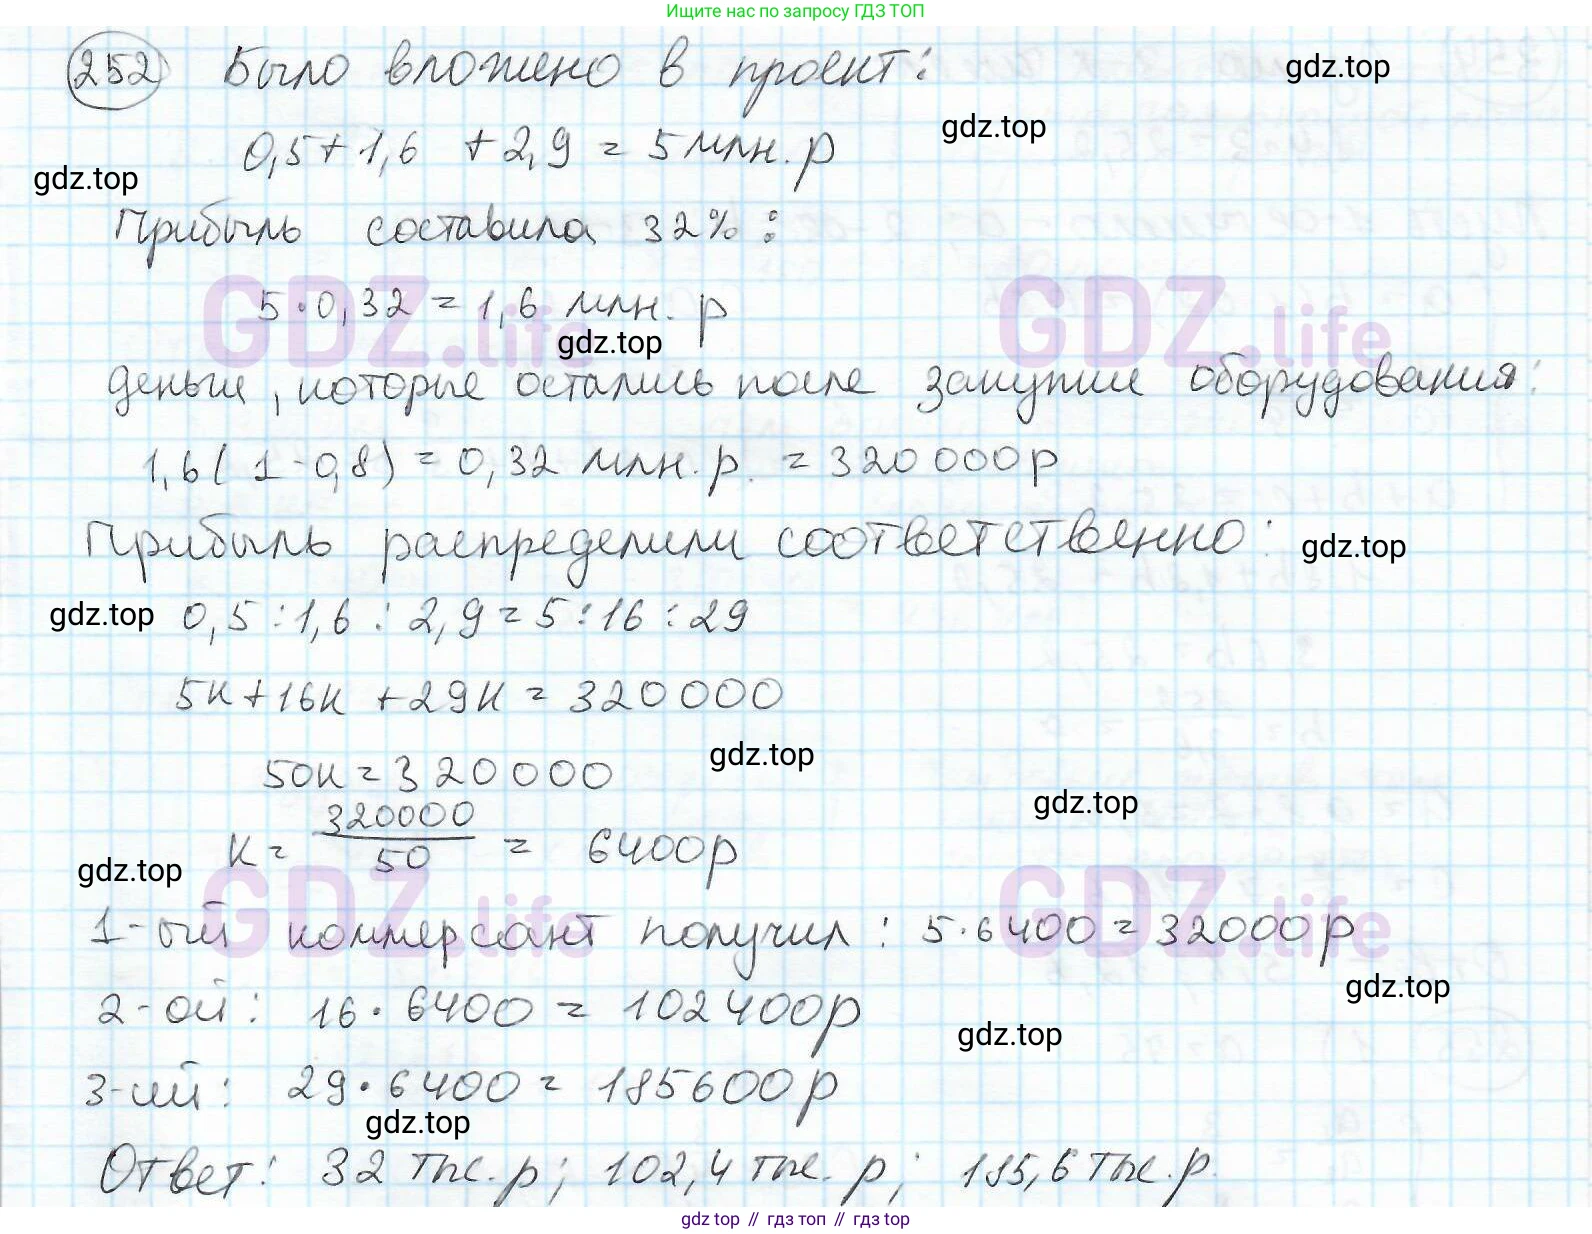 Ищите нас по запросу ГДЗ ТОП
252 Было вложено в проект: gdz.top
0,5 + 1,6 + 2,9 = 5 млн. р gdz.top
gdz.top
Прибыль составила 32% :
GDZ.life GDZ.life
5 · 0,32 = 1,6 млн. р
gdz.top
деньги, которые остались после закупки оборудования:
1,6 ( 1 - 0,8 ) = 0,32 млн. р. = 320 000 р
Прибыль распределили соответственно: gdz.top
gdz.top 0,5 : 1,6 : 2,9 = 5 : 16 : 29
5к + 16к + 29к = 320 000
50к = 320 000 gdz.top
gdz.top
к = 320000/50 = 6400р
gdz.top
GDZ.life GDZ.life
1-ый коммерсант получил : 5 · 6400 = 32000р
gdz.top
2-ой : 16 · 6400 = 102 400р
gdz.top
3-ий : 29 · 6400 = 185600р
gdz.top
Ответ: 32 тыс. р; 102,4 тыс. р; 185,6 тыс. р.
gdz top // гдз топ // гдз top